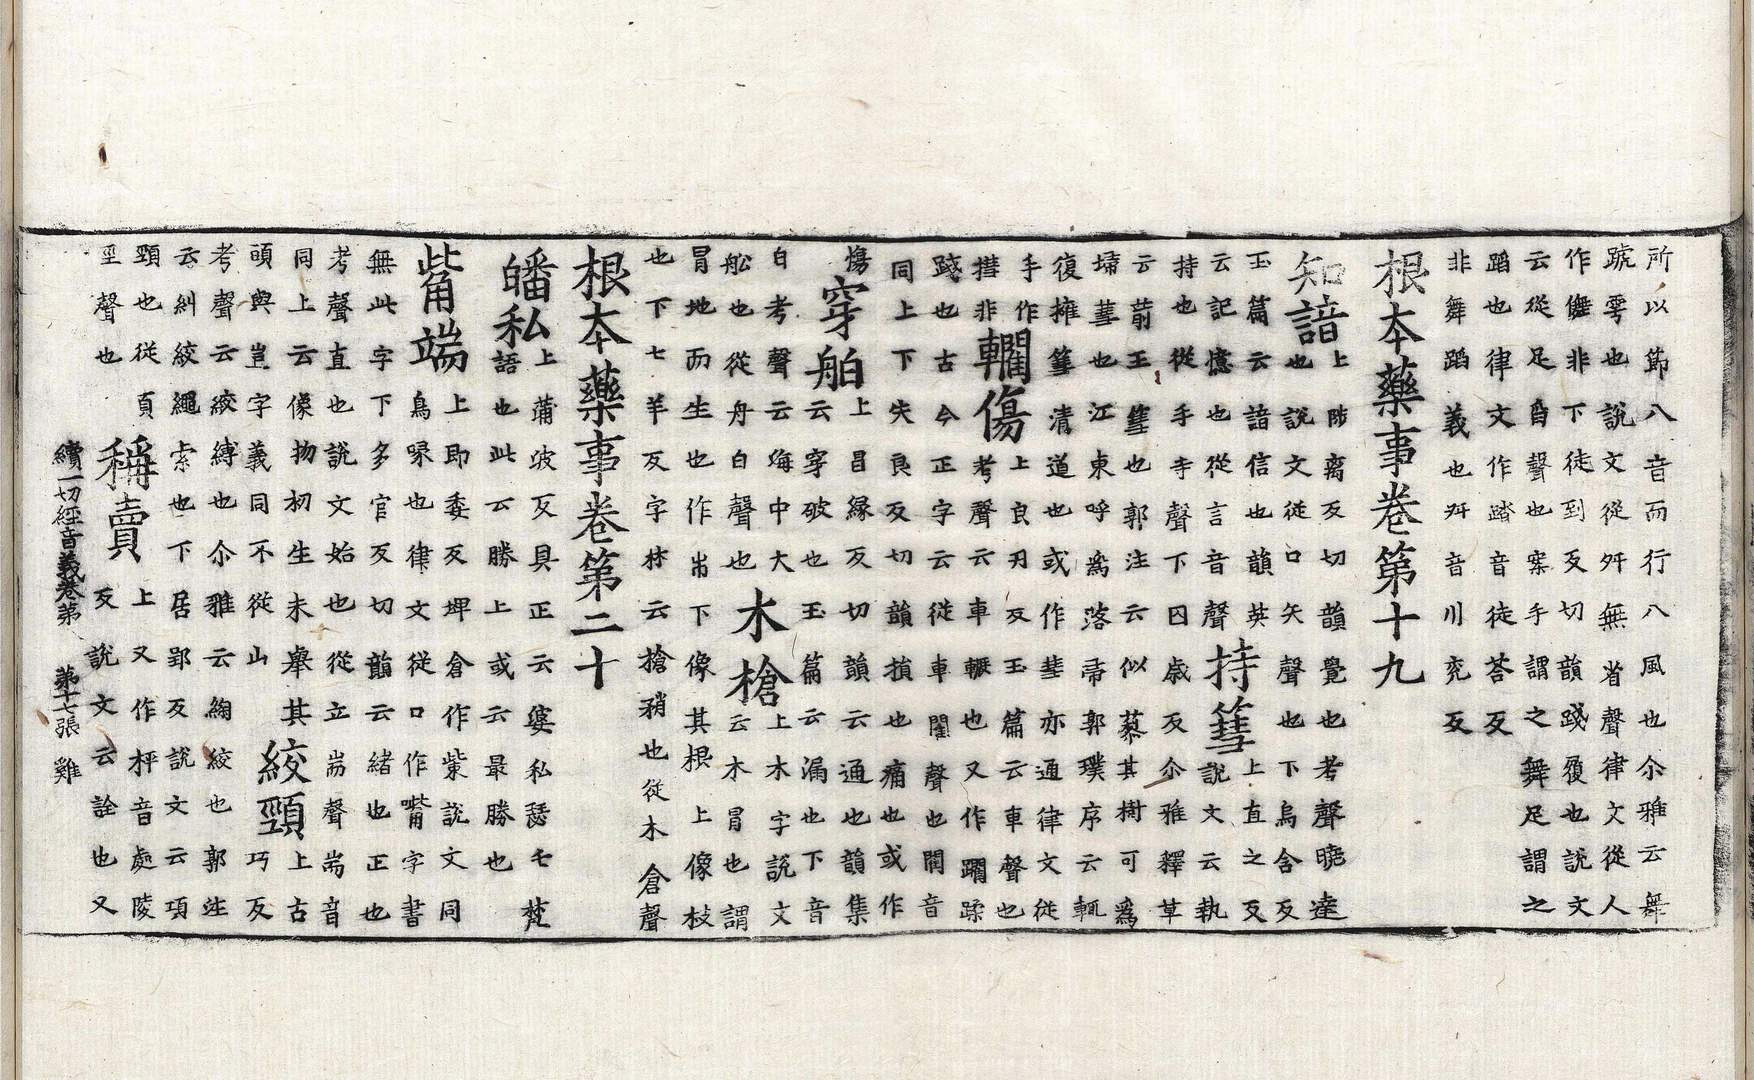 所以節八音而行八風也尒雅云舞
號雩也說文從舛無省聲律文從人
作儛非下徒到反切韻踐履也說文
云從足舀聲也案手謂之舞足謂之
蹈也律文作踏音徒荅反
非舞蹈義也舛音川兖反
根本藥事卷第十九
知諳上陟离反切韻覺也考聲曉達
也說文從口矢聲也下烏含反
玉篇云諳信也韻英持篲上直之反
云記憶也從言音聲說文云執
持也從手寺聲下囚歲反尒雅釋草
云葥王篲也郭注云似蓦其樹可爲
埽篲也江東呼爲落帚郭璞序云輒
復擁篲清道也或作彗亦通律文從
手作轥傷上良刃反玉篇云車聲也
撌非考聲云車轢也又作躪蹂
踐也古今正字云從車閵聲也閵音
同上下失良反切韻損也痛也或作
慯穿舶上昌緣反切韻云通也韻集
云穿破也玉篇云漏也下音
白考聲云海中大木槍上木字說文
舩也從舟白聲也云木冒也謂
冒地而生也作朩下像其根上像枝
也下七羊反字林云搶矟也從木倉聲
根本藥事卷第二十
皤私上蒲波反具正云婆私瑟七梵
語也此云勝上或云最勝也
觜端上即委反埤倉作㭰說文同
鳥喙也律文從口作嘴字書
無此字下多官反切韻云緒也正也
考聲直也說文始也從立耑聲耑音
同上云像物初生未舉其絞頸上古
頭與豈字義同不從山巧反
考聲云絞縛也尒雅云絢絞也郭注
云糾絞繩索也下居郢反說文云項
頸也從頁稱賣上又作秤音處陵
巠聲也反說文云詮也又
續一切經音義卷第 第十七張 雞